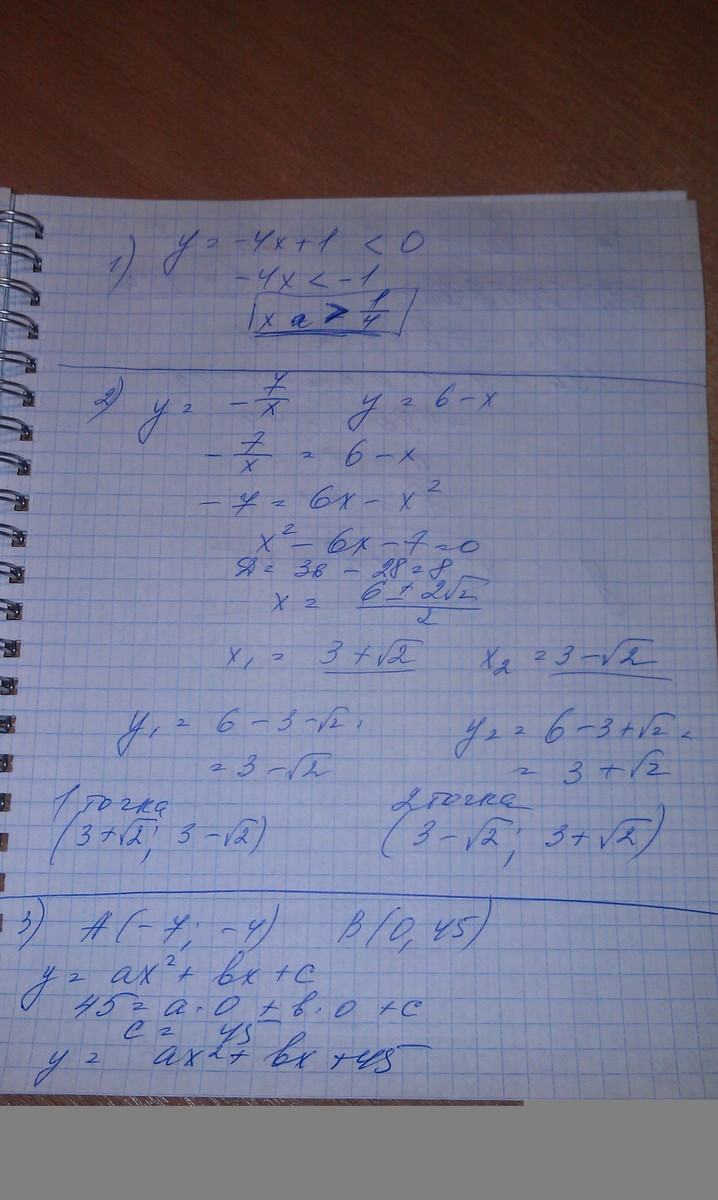 1) y = -4x+1 < 0
-4x < -1
x > 1/4
2) y = -7/x y = 6-x
-7/x = 6-x
-7 = 6x - x²
x² - 6x - 7 = 0
D = 36 - 28 = 8
x = (6 ± 2√2)/2
x₁ = 3+√2 x₂ = 3-√2
y₁ = 6-3-√2 = y₂ = 6-3+√2 =
= 3-√2 = 3+√2
1 точка 2 точка
(3+√2; 3-√2) (3-√2; 3+√2)
3) A(-7; -4) B(0, 45)
y = ax² + bx + c
45 = a·0 + b·0 + c
c = 45
y = ax² + bx + 45